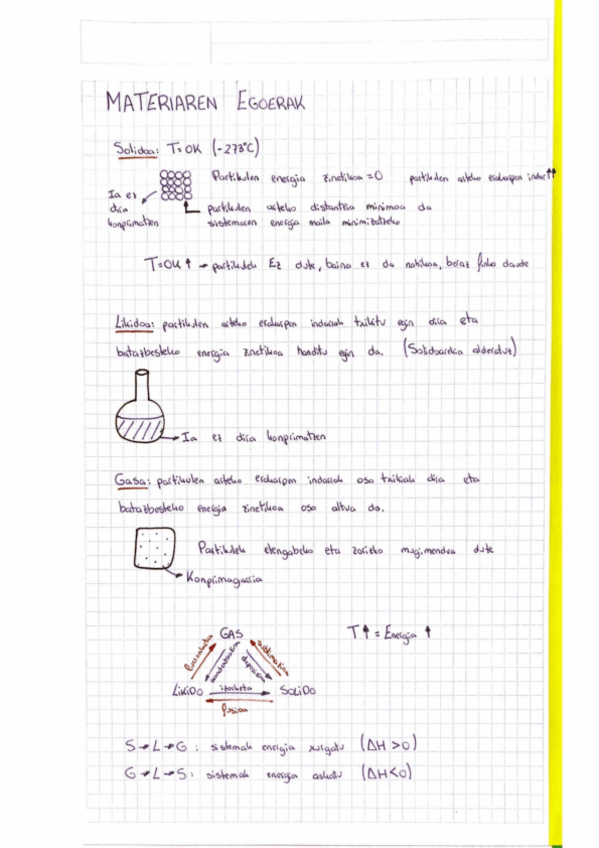 MATERIAREN EGOERAK
Solidoa: T=0K (-273°C)
Partikulen energia zinetikoa =0 partikulen arteko erakarpen indar ↑↑
Ia ez dira konprimatzen
partikulen arteko distantzia minimoa da
sistemaren energia maila minimizatzeko
T=0K ↑ → partikulek Ez dute, baino ez da nahikoa, beraz finko daude
Likidoa: partikulen arteko erakarpen indarrak txikitu egin dira eta
batazbesteko energia zinetikoa handitu egin da. (Solidoarekin alderatuz)
Ia ez dira konprimatzen
Gasa: partikulen arteko erakarpen indarrak oso txikiak dira eta
batazbesteko energia zinetikoa oso altua da.
Partikulek etengabeko eta zorizko mugimendua dute
Konprimagarria
GAS
T↑ = Energia ↑
lurrunketa
kondentsazioa
deposizioa
sublimazioa
LIKIDO
izozketa
SOLIDO
fusioa
S→L→G: sistemak energia xurgatu (ΔH>0)
G→L→S: sistemak energia askatu (ΔH<0)